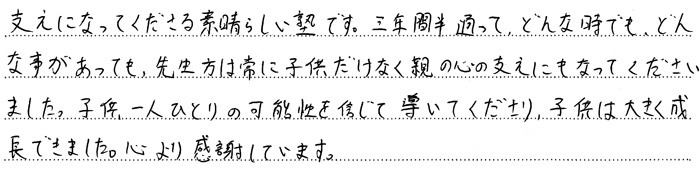 支えになってくださる素晴らしい塾です。三年間半通って、どんな時でも、どん
な事があっても、先生方は常に子供だけなく親の心の支えにもなってください
ました。子供、一人ひとりの可能性を信じて導いてくださり、子供は大きく成
長できました。心より感謝しています。